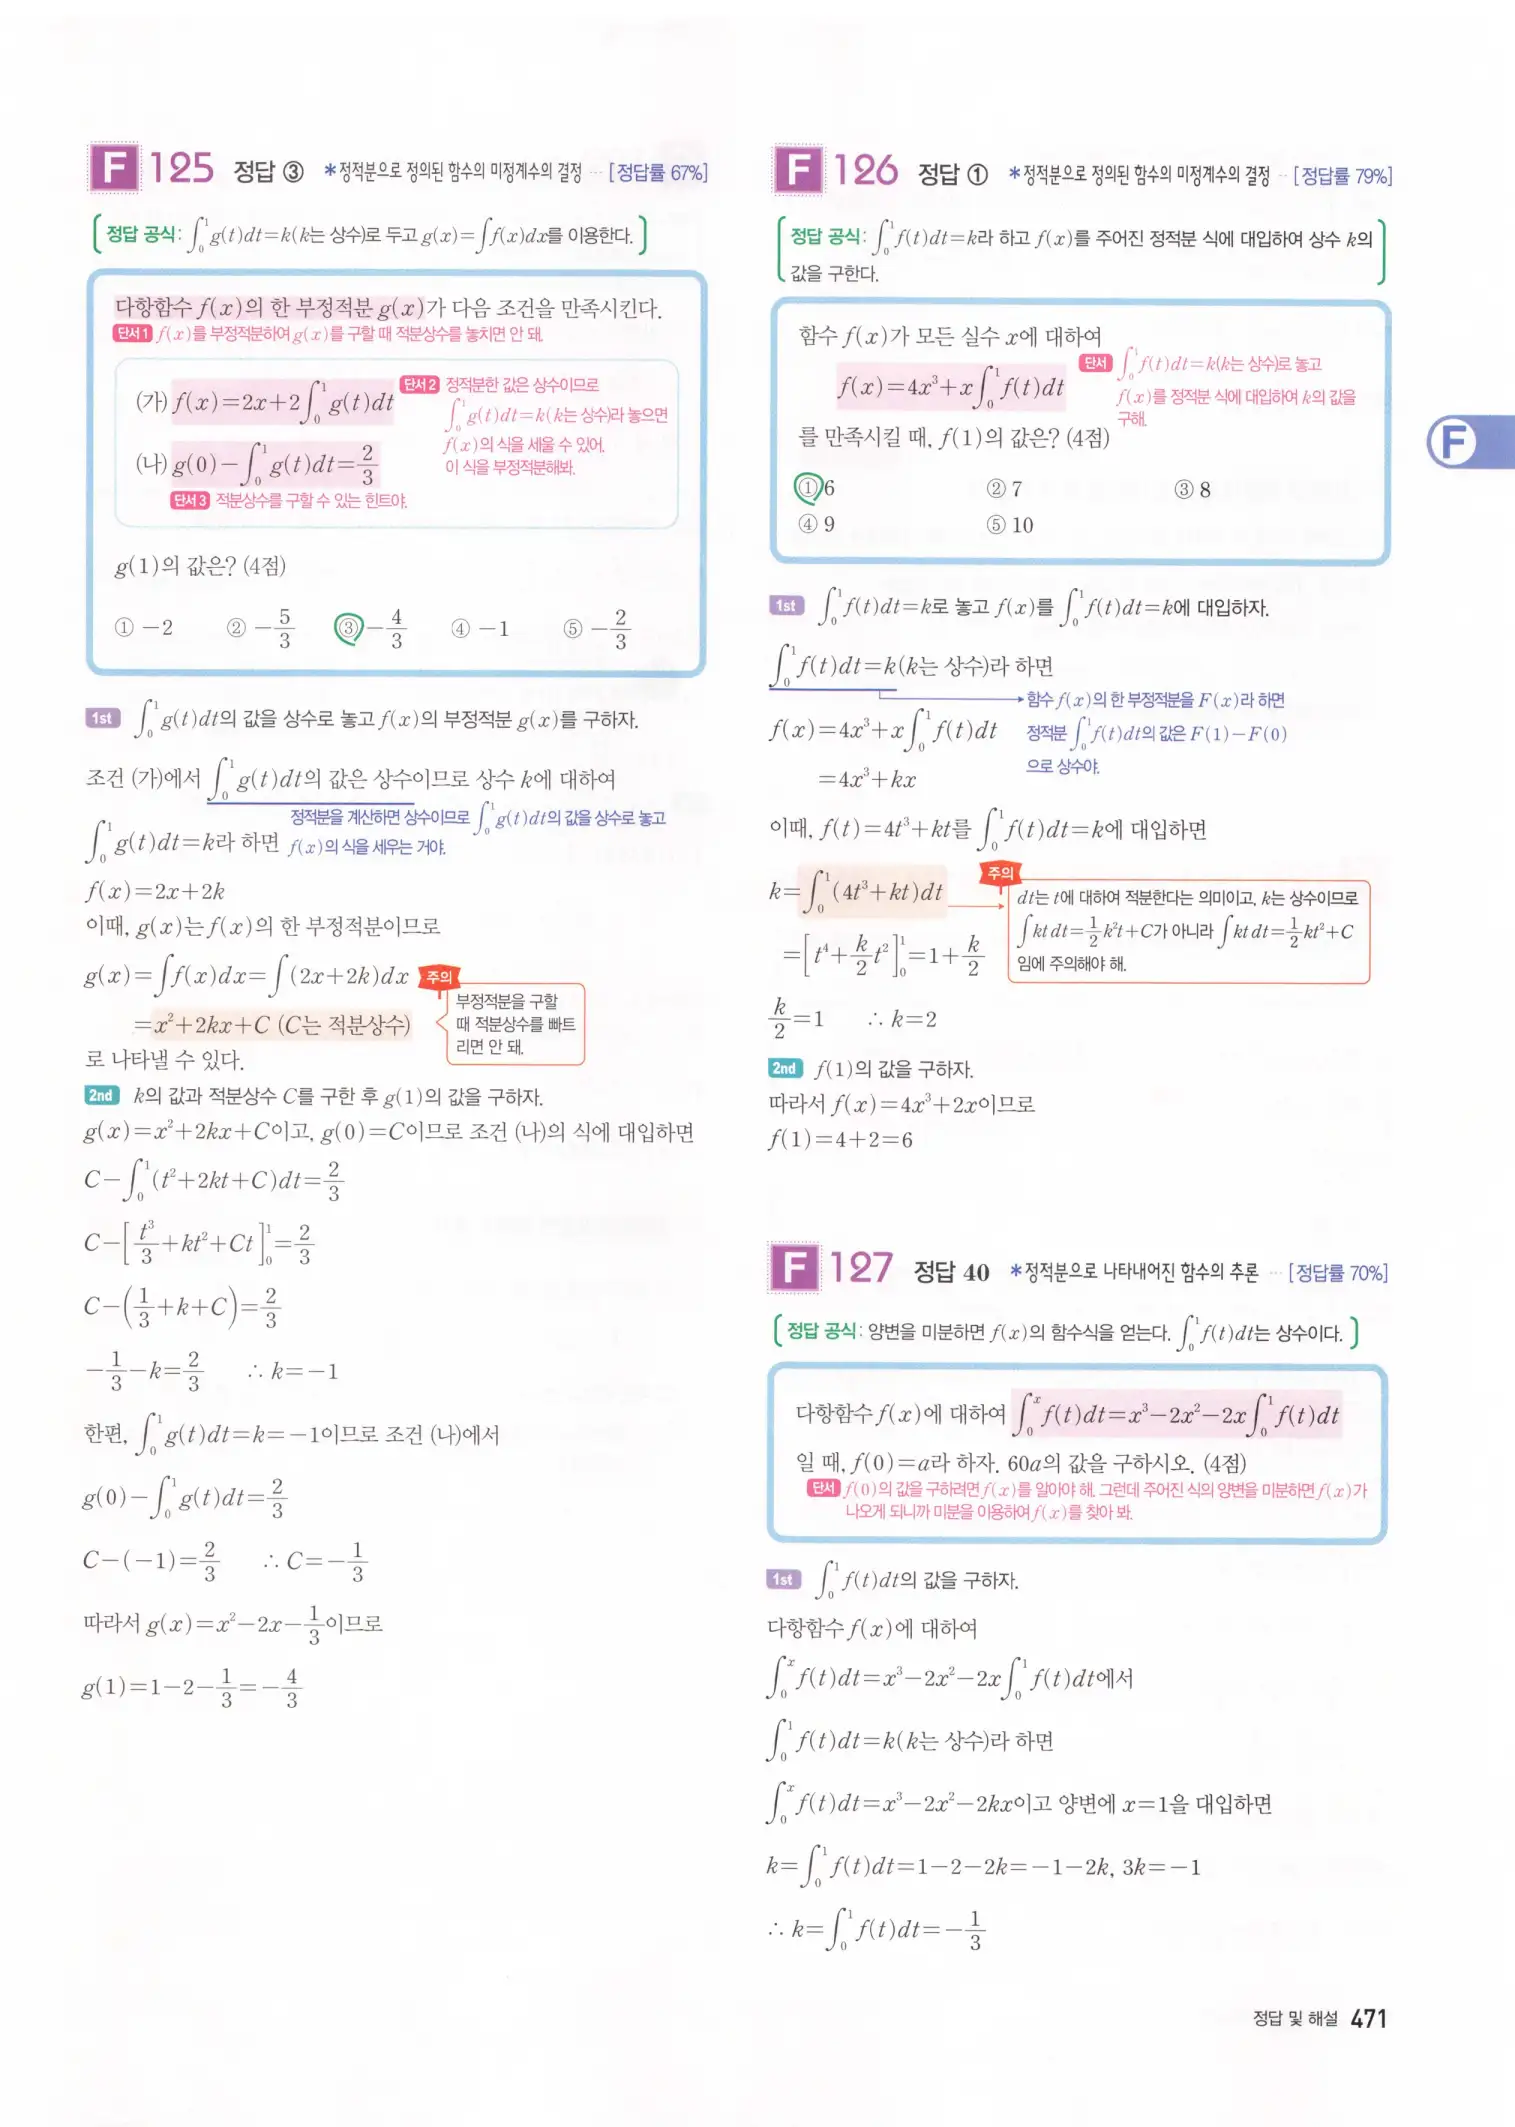 F 125 정답 ③ *정적분으로 정의된 함수의 미정계수의 결정 ··· [정답률 67%]
정답 공식: ∫₀¹ g(t)dt=k(k는 상수)로 두고 g(x)=∫f(x)dx를 이용한다.
다항함수 f(x)의 한 부정적분 g(x)가 다음 조건을 만족시킨다.
단서1 f(x)를 부정적분하여 g(x)를 구할 때 적분상수를 놓치면 안 돼.
(가) f(x)=2x+2∫₀¹ g(t)dt
단서2 정적분한 값은 상수이므로
∫₀¹ g(t)dt=k(k는 상수)라 놓으면
f(x)의 식을 세울 수 있어.
이 식을 부정적분해봐.
(나) g(0)-∫₀¹ g(t)dt=2/3
단서3 적분상수를 구할 수 있는 힌트야.
g(1)의 값은? (4점)
① -2 ② -5/3 ③ -4/3 ④ -1 ⑤ -2/3
1st ∫₀¹ g(t)dt의 값을 상수로 놓고 f(x)의 부정적분 g(x)를 구하자.
조건 (가)에서 ∫₀¹ g(t)dt의 값은 상수이므로 상수 k에 대하여
정적분을 계산하면 상수이므로 ∫₀¹ g(t)dt의 값을 상수로 놓고
f(x)의 식을 세우는 거야.
∫₀¹ g(t)dt=k라 하면
f(x)=2x+2k
이때, g(x)는 f(x)의 한 부정적분이므로
g(x)=∫f(x)dx=∫(2x+2k)dx
=x²+2kx+C (C는 적분상수)
주의
부정적분을 구할
때 적분상수를 빠트
리면 안 돼.
로 나타낼 수 있다.
2nd k의 값과 적분상수 C를 구한 후 g(1)의 값을 구하자.
g(x)=x²+2kx+C이고, g(0)=C이므로 조건 (나)의 식에 대입하면
C-∫₀¹ (t²+2kt+C)dt=2/3
C-[t³/3+kt²+Ct]₀¹=2/3
C-(1/3+k+C)=2/3
-1/3-k=2/3 ∴ k=-1
한편, ∫₀¹ g(t)dt=k=-1이므로 조건 (나)에서
g(0)-∫₀¹ g(t)dt=2/3
C-(-1)=2/3 ∴ C=-1/3
따라서 g(x)=x²-2x-1/3이므로
g(1)=1-2-1/3=-4/3
F 126 정답 ① *정적분으로 정의된 함수의 미정계수의 결정 ·· [정답률 79%]
정답 공식: ∫₀¹ f(t)dt=k라 하고 f(x)를 주어진 정적분 식에 대입하여 상수 k의
값을 구한다.
함수 f(x)가 모든 실수 x에 대하여
f(x)=4x³+x∫₀¹ f(t)dt
단서 ∫₀¹ f(t)dt=k(k는 상수)로 놓고
f(x)를 정적분 식에 대입하여 k의 값을
구해.
를 만족시킬 때, f(1)의 값은? (4점)
① 6 ② 7 ③ 8
④ 9 ⑤ 10
1st ∫₀¹ f(t)dt=k로 놓고 f(x)를 ∫₀¹ f(t)dt=k에 대입하자.
∫₀¹ f(t)dt=k(k는 상수)라 하면
함수 f(x)의 한 부정적분을 F(x)라 하면
정적분 ∫₀¹ f(t)dt의 값은 F(1)-F(0)
으로 상수야.
f(x)=4x³+x∫₀¹ f(t)dt
=4x³+kx
이때, f(t)=4t³+kt를 ∫₀¹ f(t)dt=k에 대입하면
k=∫₀¹ (4t³+kt)dt
주의
dt는 t에 대하여 적분한다는 의미이고, k는 상수이므로
∫kt dt=1/2 k²t+C가 아니라 ∫kt dt=1/2 kt²+C
임에 주의해야 해.
=[t⁴+k/2 t²]₀¹=1+k/2
k/2=1 ∴ k=2
2nd f(1)의 값을 구하자.
따라서 f(x)=4x³+2x이므로
f(1)=4+2=6
F 127 정답 40 *정적분으로 나타내어진 함수의 추론 ··· [정답률 70%]
정답 공식: 양변을 미분하면 f(x)의 함수식을 얻는다. ∫₀¹ f(t)dt는 상수이다.
다항함수 f(x)에 대하여 ∫₀ˣ f(t)dt=x³-2x²-2x∫₀¹ f(t)dt
일 때, f(0)=a라 하자. 60a의 값을 구하시오. (4점)
단서 f(0)의 값을 구하려면 f(x)를 알아야 해. 그런데 주어진 식의 양변을 미분하면 f(x)가
나오게 되니까 미분을 이용하여 f(x)를 찾아 봐.
1st ∫₀¹ f(t)dt의 값을 구하자.
다항함수 f(x)에 대하여
∫₀ˣ f(t)dt=x³-2x²-2x∫₀¹ f(t)dt에서
∫₀¹ f(t)dt=k(k는 상수)라 하면
∫₀ˣ f(t)dt=x³-2x²-2kx이고 양변에 x=1을 대입하면
k=∫₀¹ f(t)dt=1-2-2k=-1-2k, 3k=-1
∴ k=∫₀¹ f(t)dt=-1/3
F
정답 및 해설 471